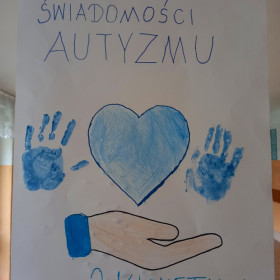 ŚWIADOMOŚCI
AUTYZMU